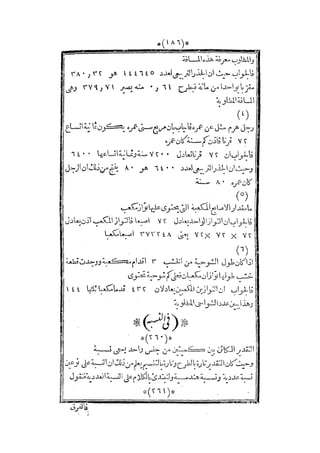 *(١٨٦)*
والمطلوب معرفة هذه المسافة
فالجواب حيث ان الجذر التربيعى لعدد ١٤٤٦٤٥ هو ٣٨٠٫٣٢
مقربا بواحد من مائة فبطرح ٠٫٦١ منه يصير ٣٧٩٫٧١ وهى
المسافة المطلوبة
(٤)
رجل هرم سئل عن عمره فاجاب بان مربع سنى عمره يكون ثمانية اتساع
٧٢ قرنا فاذن كم سنة كان عمره
فالجواب ان ٧٢ قرنا تعادل ٧٢٠٠ سنة وثمانية اتساعها ٦٤٠٠
وحيث ان الجذر التربيعى لعدد ٦٤٠٠ هو ٨٠ ينتج من ذلك ان الرجل
كان عمره ٨٠ سنة
(٥)
ما مقدار الاصابع المكعبة التى يحتوى عليها تواز مكعب
فالجواب ان التواز الواحد يعادل ٧٢ اصبعا فالتواز المكعب اذن يعادل
٧٢ × ٧٢ × ٧٢ يعنى ٣٧٣٢٤٨ اصبعا مكعبا
(٦)
اذا كان طول الشوحية من الخشب ٣ اقدام مكعبة ووجدت قطعة
خشب طولها توازان مكعبان فعلى كم شوحية تحتوى
فالجواب ان التوازين المكعبين يعادلان ٤٣٢ قدما مكعبا ثلثها ١٤٤
وهذا بين عدد الشواحى المطلوبة
*(فى النسب)*
*(٢٦٠)*
التقدير الكائن بين كميتين من جنس واحد يسمى نسبة
وحيث كان التقدير تارة بالطرح وتارة بالتقسيم يعلم من ذلك ان النسبة على نوعين
نسبة عددية ونسبة هندسية ولنبتدئ بالكلام على النسبة العددية فنقول
*(٢٦١)*
فالفرق